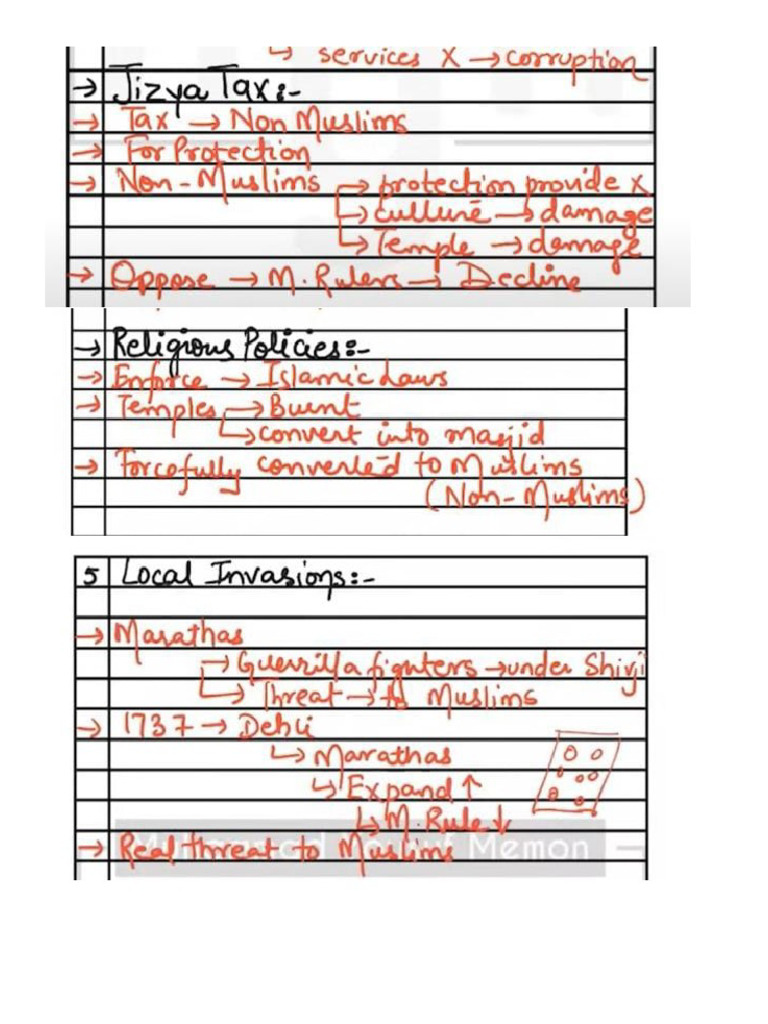 ↳ services X → corruption
→ Jizya Tax:-
→ Tax → Non Muslims
→ For Protection
→ Non-Muslims → protection provide X
↳ culture → damage
↳ Temple → damage
→ Oppose → M. Rulers → Decline
→ Religious Policies:-
→ Enforce → Islamic Laws
→ Temples → Burnt
↳ convert into masjid
→ Forcefully converted to Muslims
(Non-Muslims)
5 Local Invasions:-
→ Marathas
→ Guerrilla fighters → under Shivji
↳ Threat → to Muslims
→ 1737 → Dehli
↳ Marathas
↳ Expand ↑
↳ M. Rule ↓
→ Real threat to Muslims
Memon